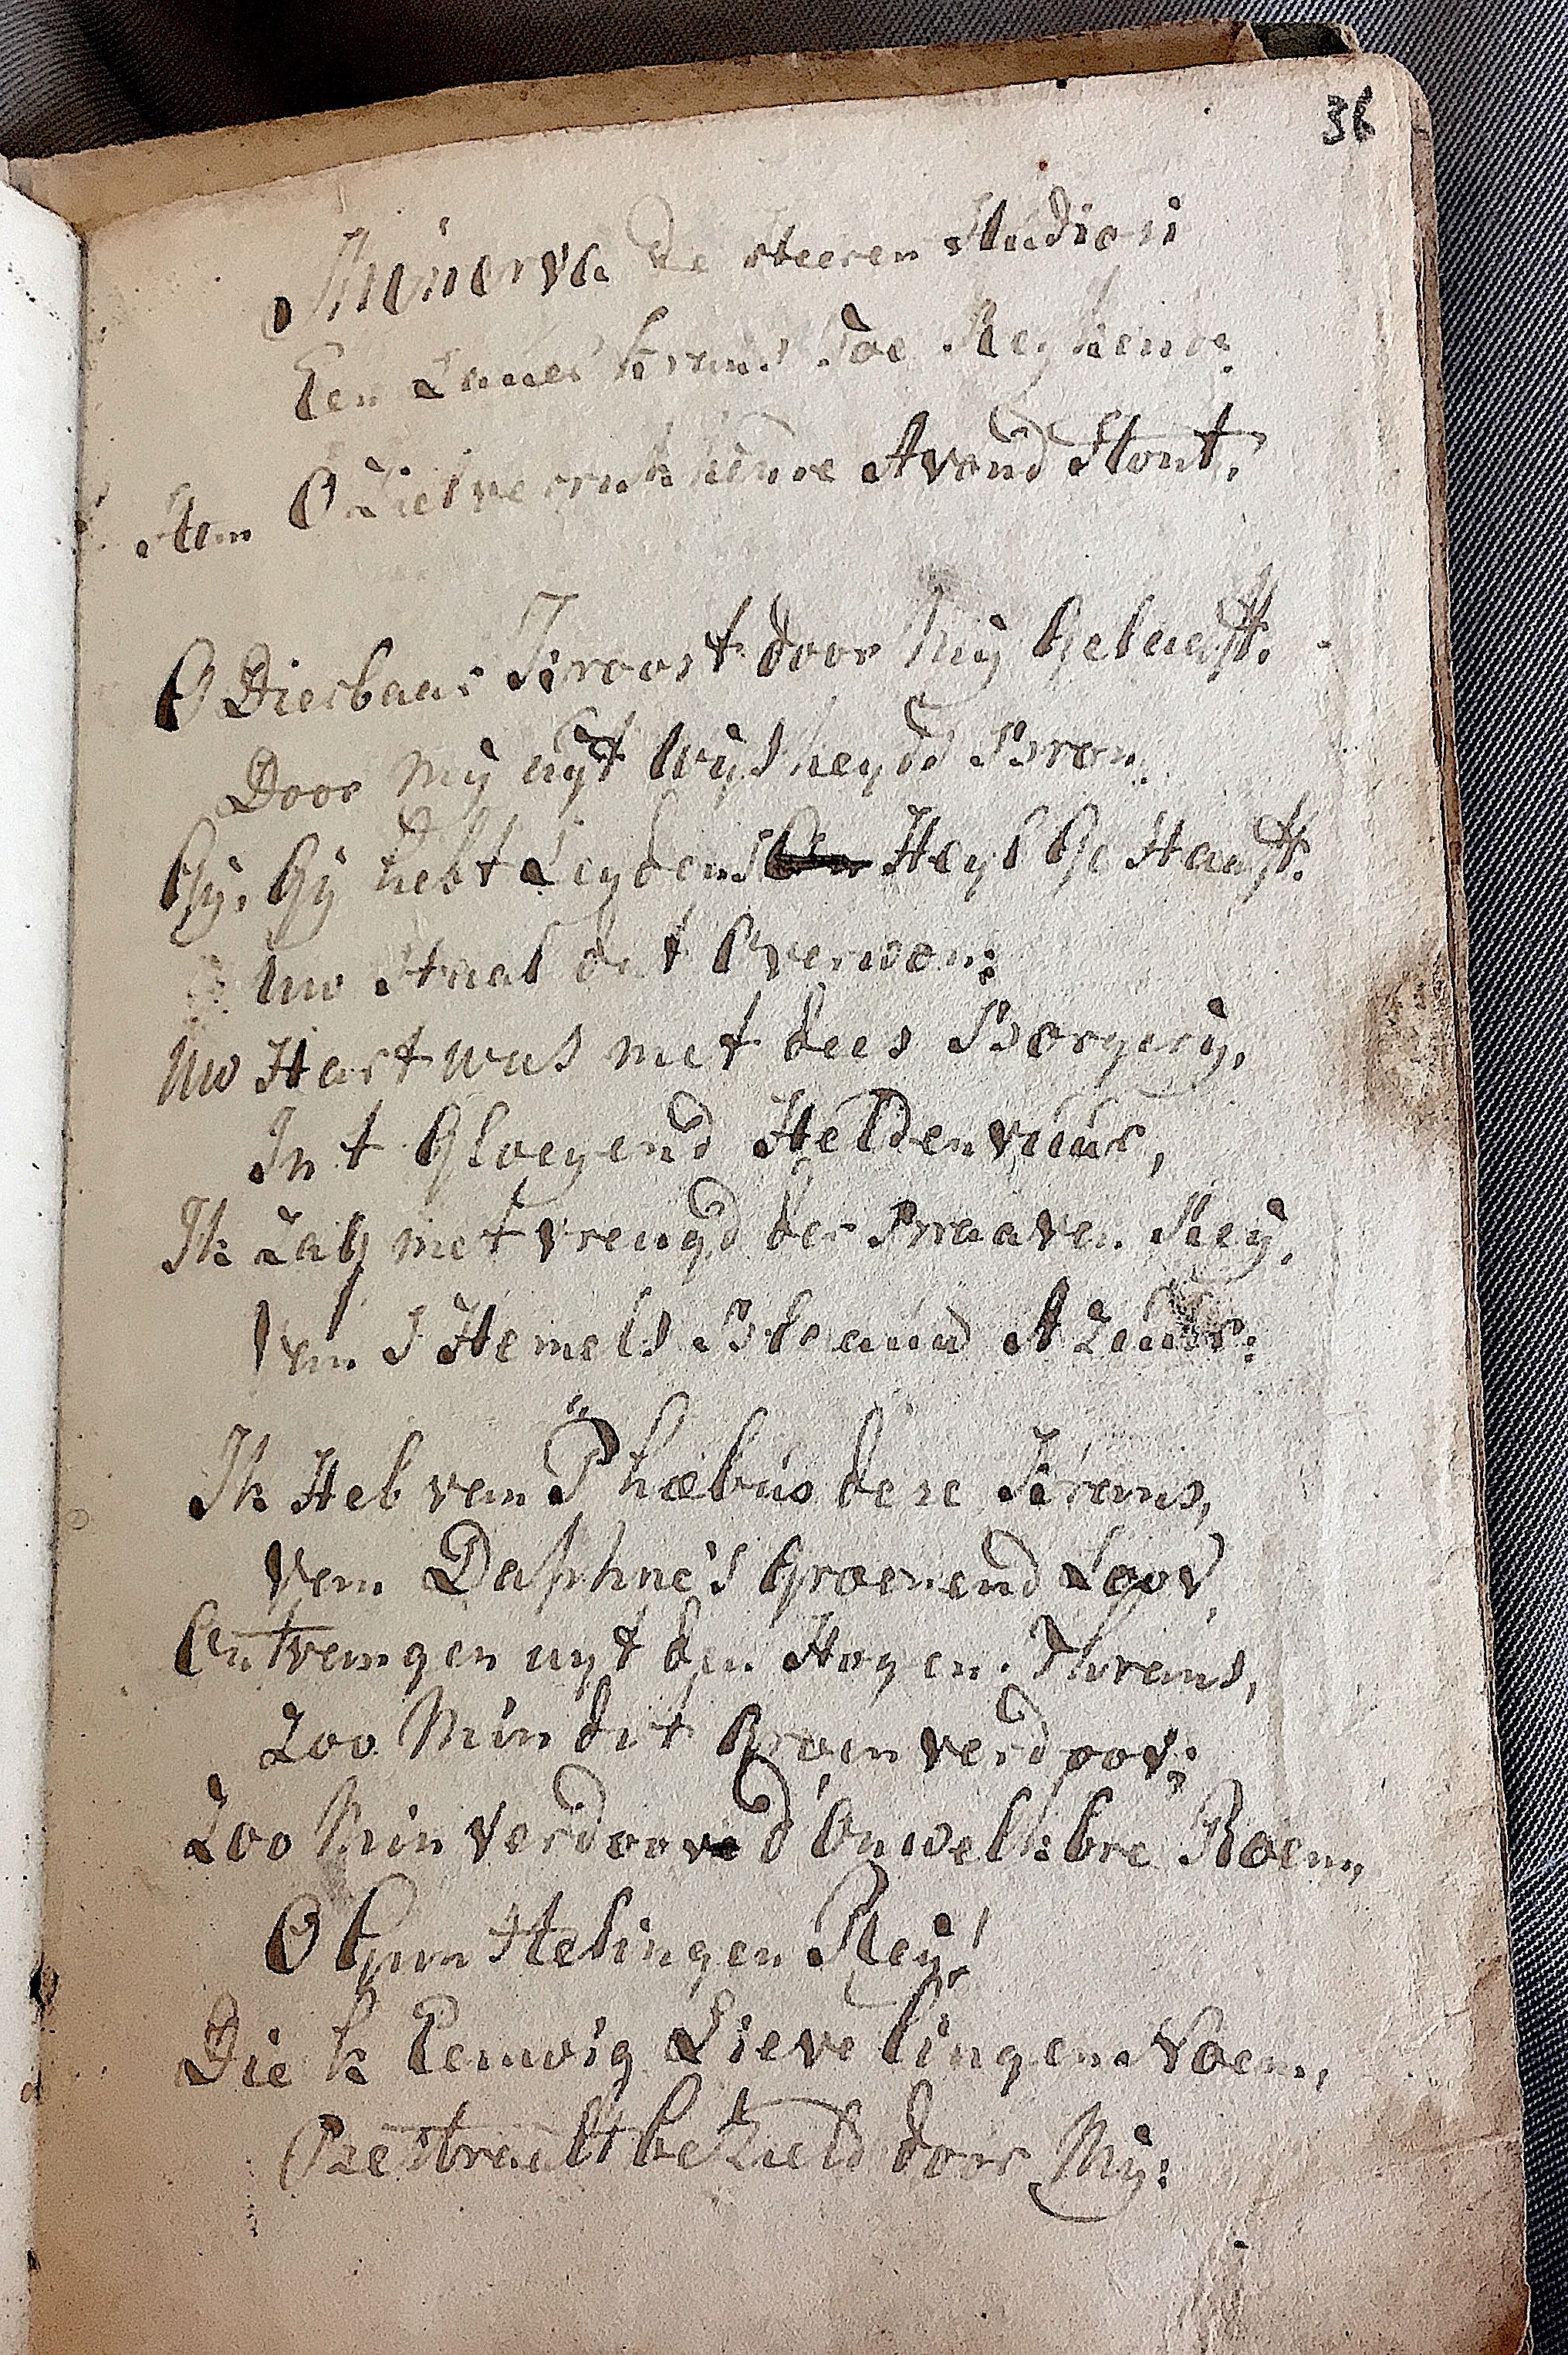 36
Minerva de Heeren Studiosi
Een Lauer Krans Toe Reykende
Stem O Zielverrukkende Avond Stont,
O Dierbaar Kroost door Mij Gekweekt.
Door Mij uyt Wijsheyds Bron,
Gij, Gij hebt Leydens Heyl Ge
Uw Staal dat Overwon:
Uw Hart was met dees Borgerij,
In t Gloeyend Heldenvuur,
Ik Zag met vreugd der Braaven Rey,
Van S Hemels Blaauw Azuur:
Ik Heb van Phœbus deze Krans,
Van Daphne's Groenend Loov,
Ontvangen uyt den Hogen Thrans,
Zoo Min dit Groen verdoov:
Zoo Min verdoov d'Onwelkbre Roem,
O Gunstelingen Rey!
Die k Eeuwig Lievelingen Noem,
Bestraalt bezield door Mij: